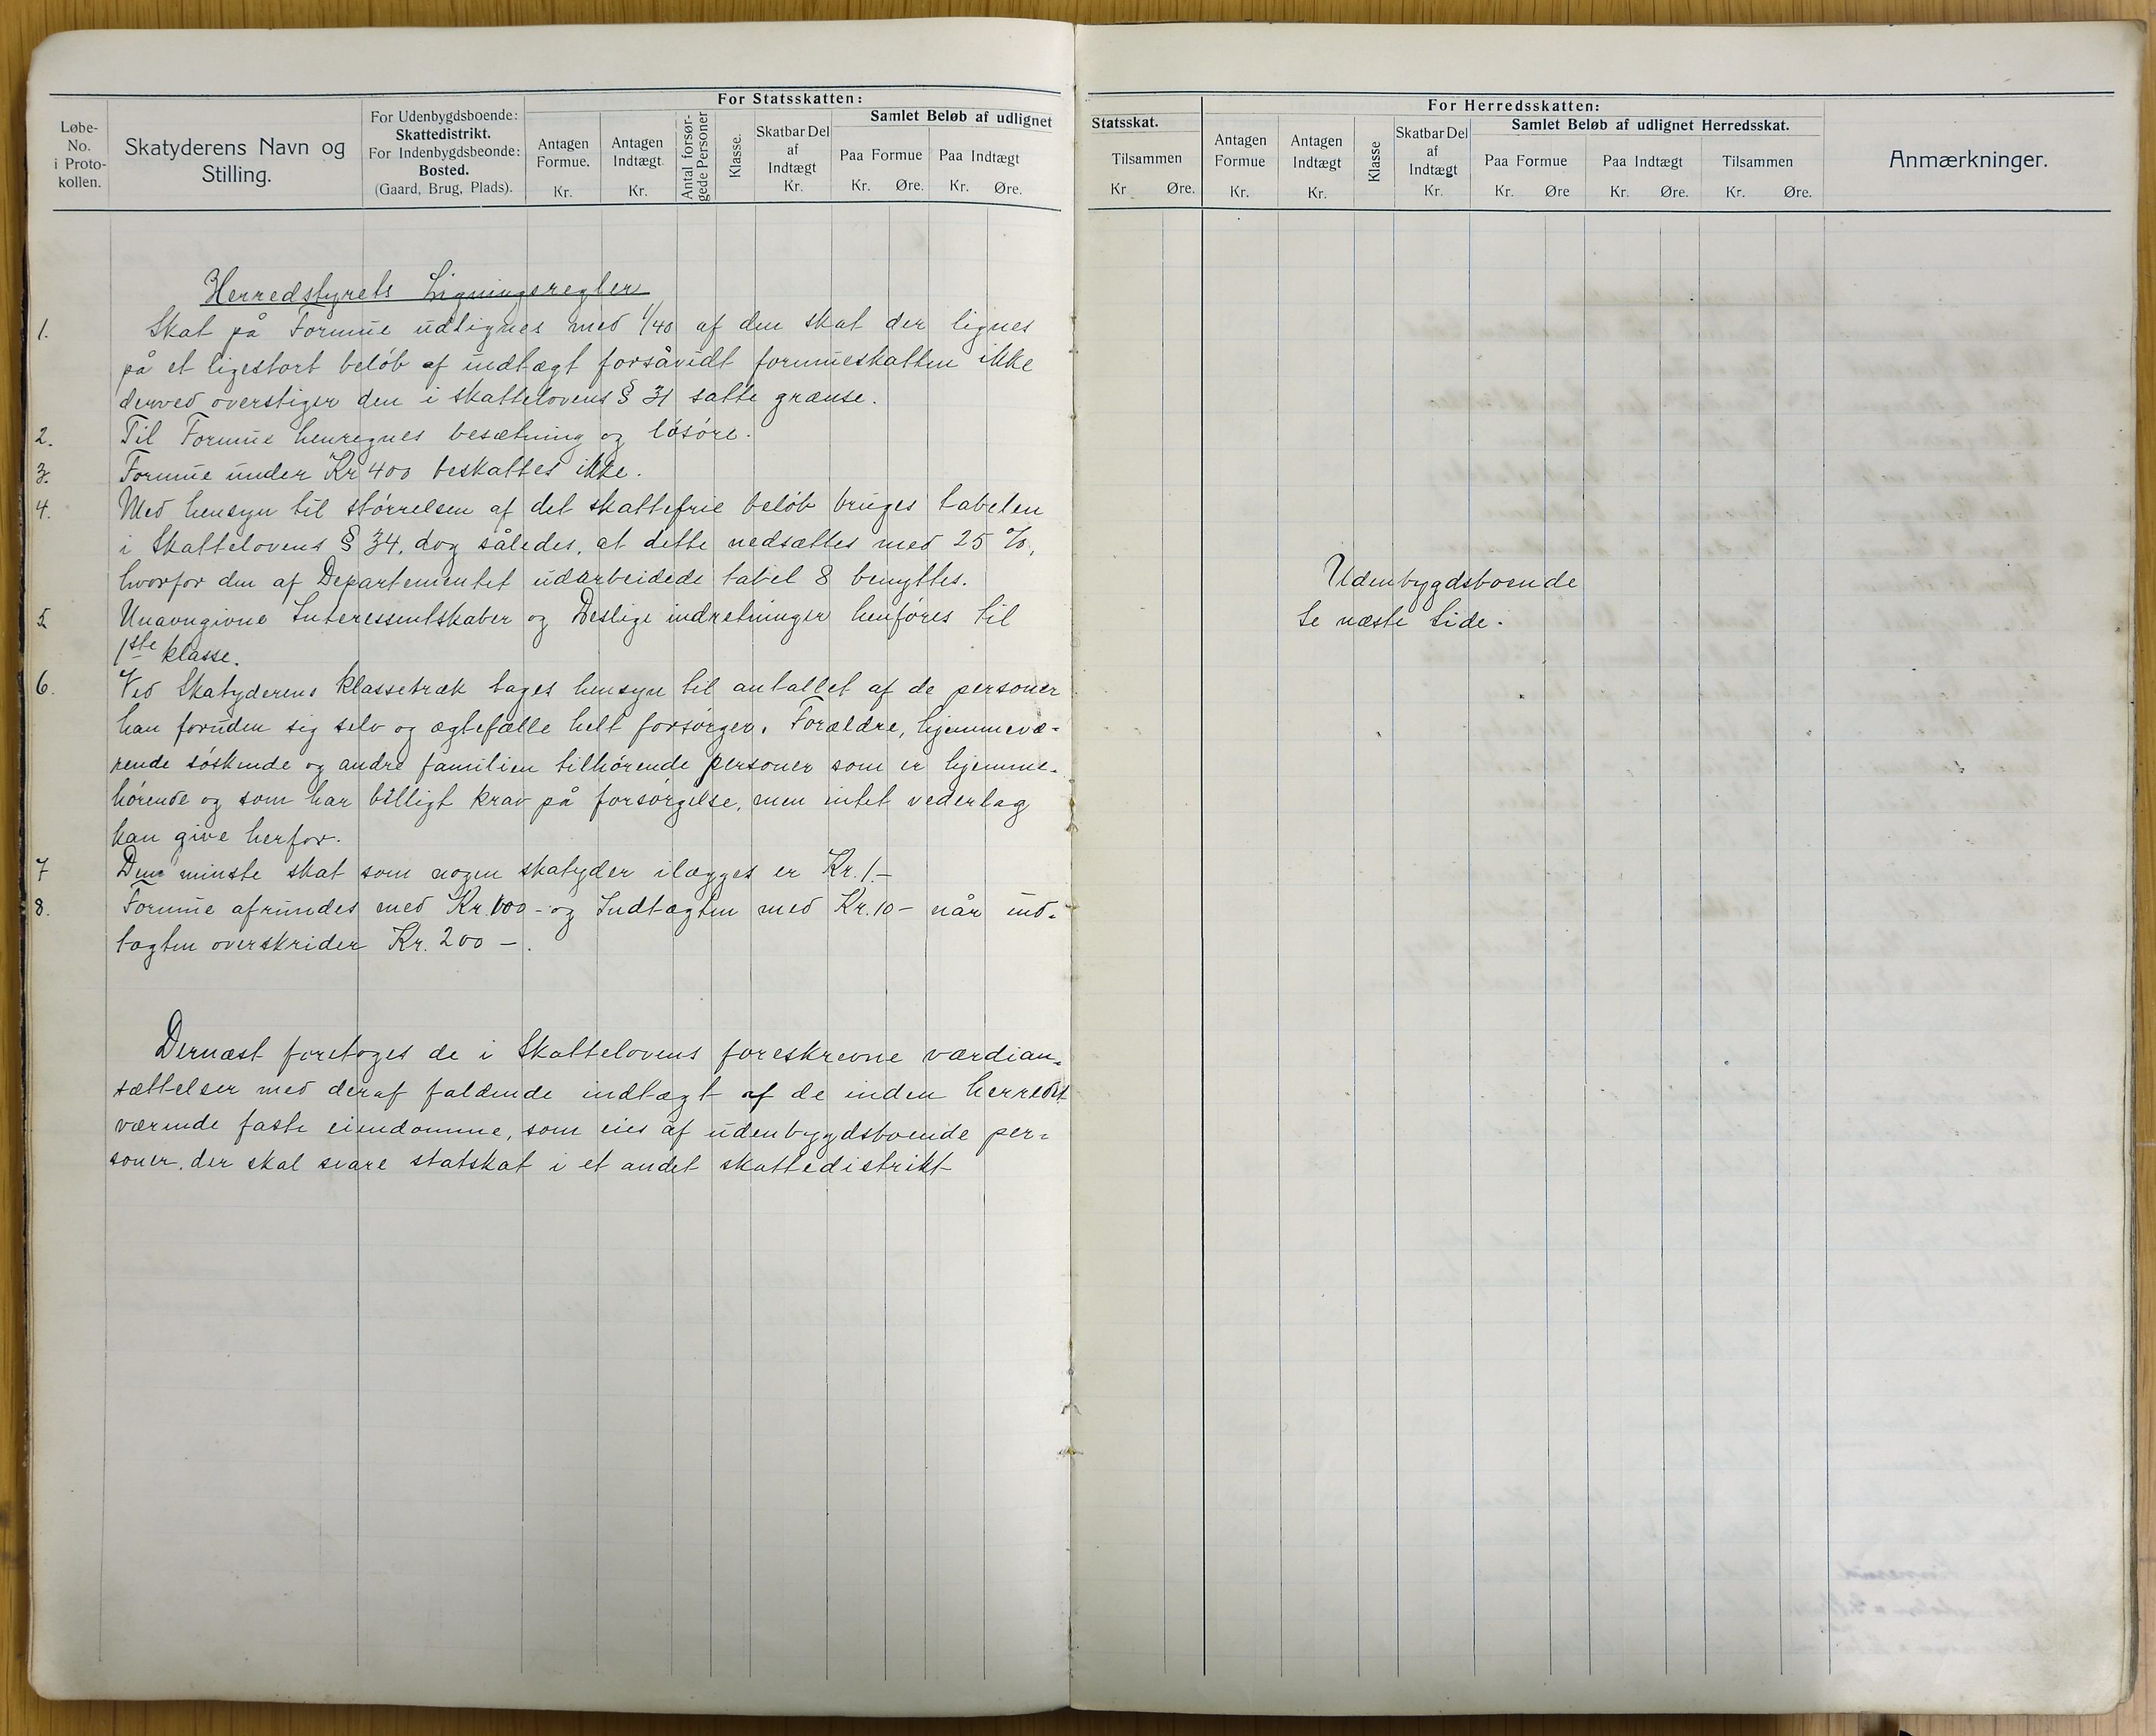 For Statsskatten:
Løbe-
No.
i Proto-
kollen.
Skatyderens Navn og
Stilling.
For Udenbygdsboende:
Skattedistrikt.
For Indenbygdsbeonde:
Bosted.
(Gaard, Brug, Plads).
Antagen
Formue.
Kr.
Antagen
Indtægt.
Kr.
Antal forsør-
gede Personer
Klasse.
Skatbar Del
af
Indtægt
Kr.
Samlet Beløb af udlignet
Paa Formue
Kr. Øre.
Paa Indtægt
Kr. Øre.
Herredstyrets Ligningsregler
1. Skat på Formue udlignes med 1/40 af den skat der lignes
på et ligestort beløb af indtægt forsåvidt formueskatten ikke
derved overstiger den i skattelovens § 31 satte grænse.
2. Til Formue henregnes besætning og løsøre.
3. Formue under Kr 400 beskattes ikke.
4. Med hensyn til størrelsen af det skattefrie beløb bruges tabelen
i Skattelovens § 34, dog således, at dette nedsættes med 25 %,
hvorfor den af Departementet udarbeidede tabel 8 benyttes.
5 Unavngivne Interessentskaber og Deslige indretninger henføres til
1ste klasse.
6. Ved Skatyderens klassetræk tages hensyn til antallet af de personer
han foruden sig selv og ægtefælle helt forsørger. Forældre, hjemmevæ-
rende søskende og andre familien tilhørende personer som er hjemme-
hørende og som har billigt krav på forsørgelse, men intet vederlag
kan give herfor.
7 Den minste skat som nogen skatyder ilægges er Kr. 1.-
8. Formue afrundes med Kr. 100 - og Indtægten med Kr. 10 - når ind-
tægten overskrider Kr. 200 - .
Dernæst foretoges de i Skattelovens foreskrevne værdian-
sættelser med deraf faldende indtægt af de inden herredet
værende faste eiendomme, som eies af udenbygdsboende per-
soner, der skal svare statskat i et andet skattedistrikt
For Herredsskatten:
Statsskat.
Tilsammen
Kr Øre.
Antagen
Formue
Kr.
Antagen
Indtægt
Kr.
Klasse
Skatbar Del
af
Indtægt
Kr.
Samlet Beløb af udlignet Herredsskat.
Paa Formue
Kr. Øre
Paa Indtægt
Kr. Øre.
Tilsammen
Kr. Øre.
Anmærkninger.
Udenbygdsboende
Se næste Side.